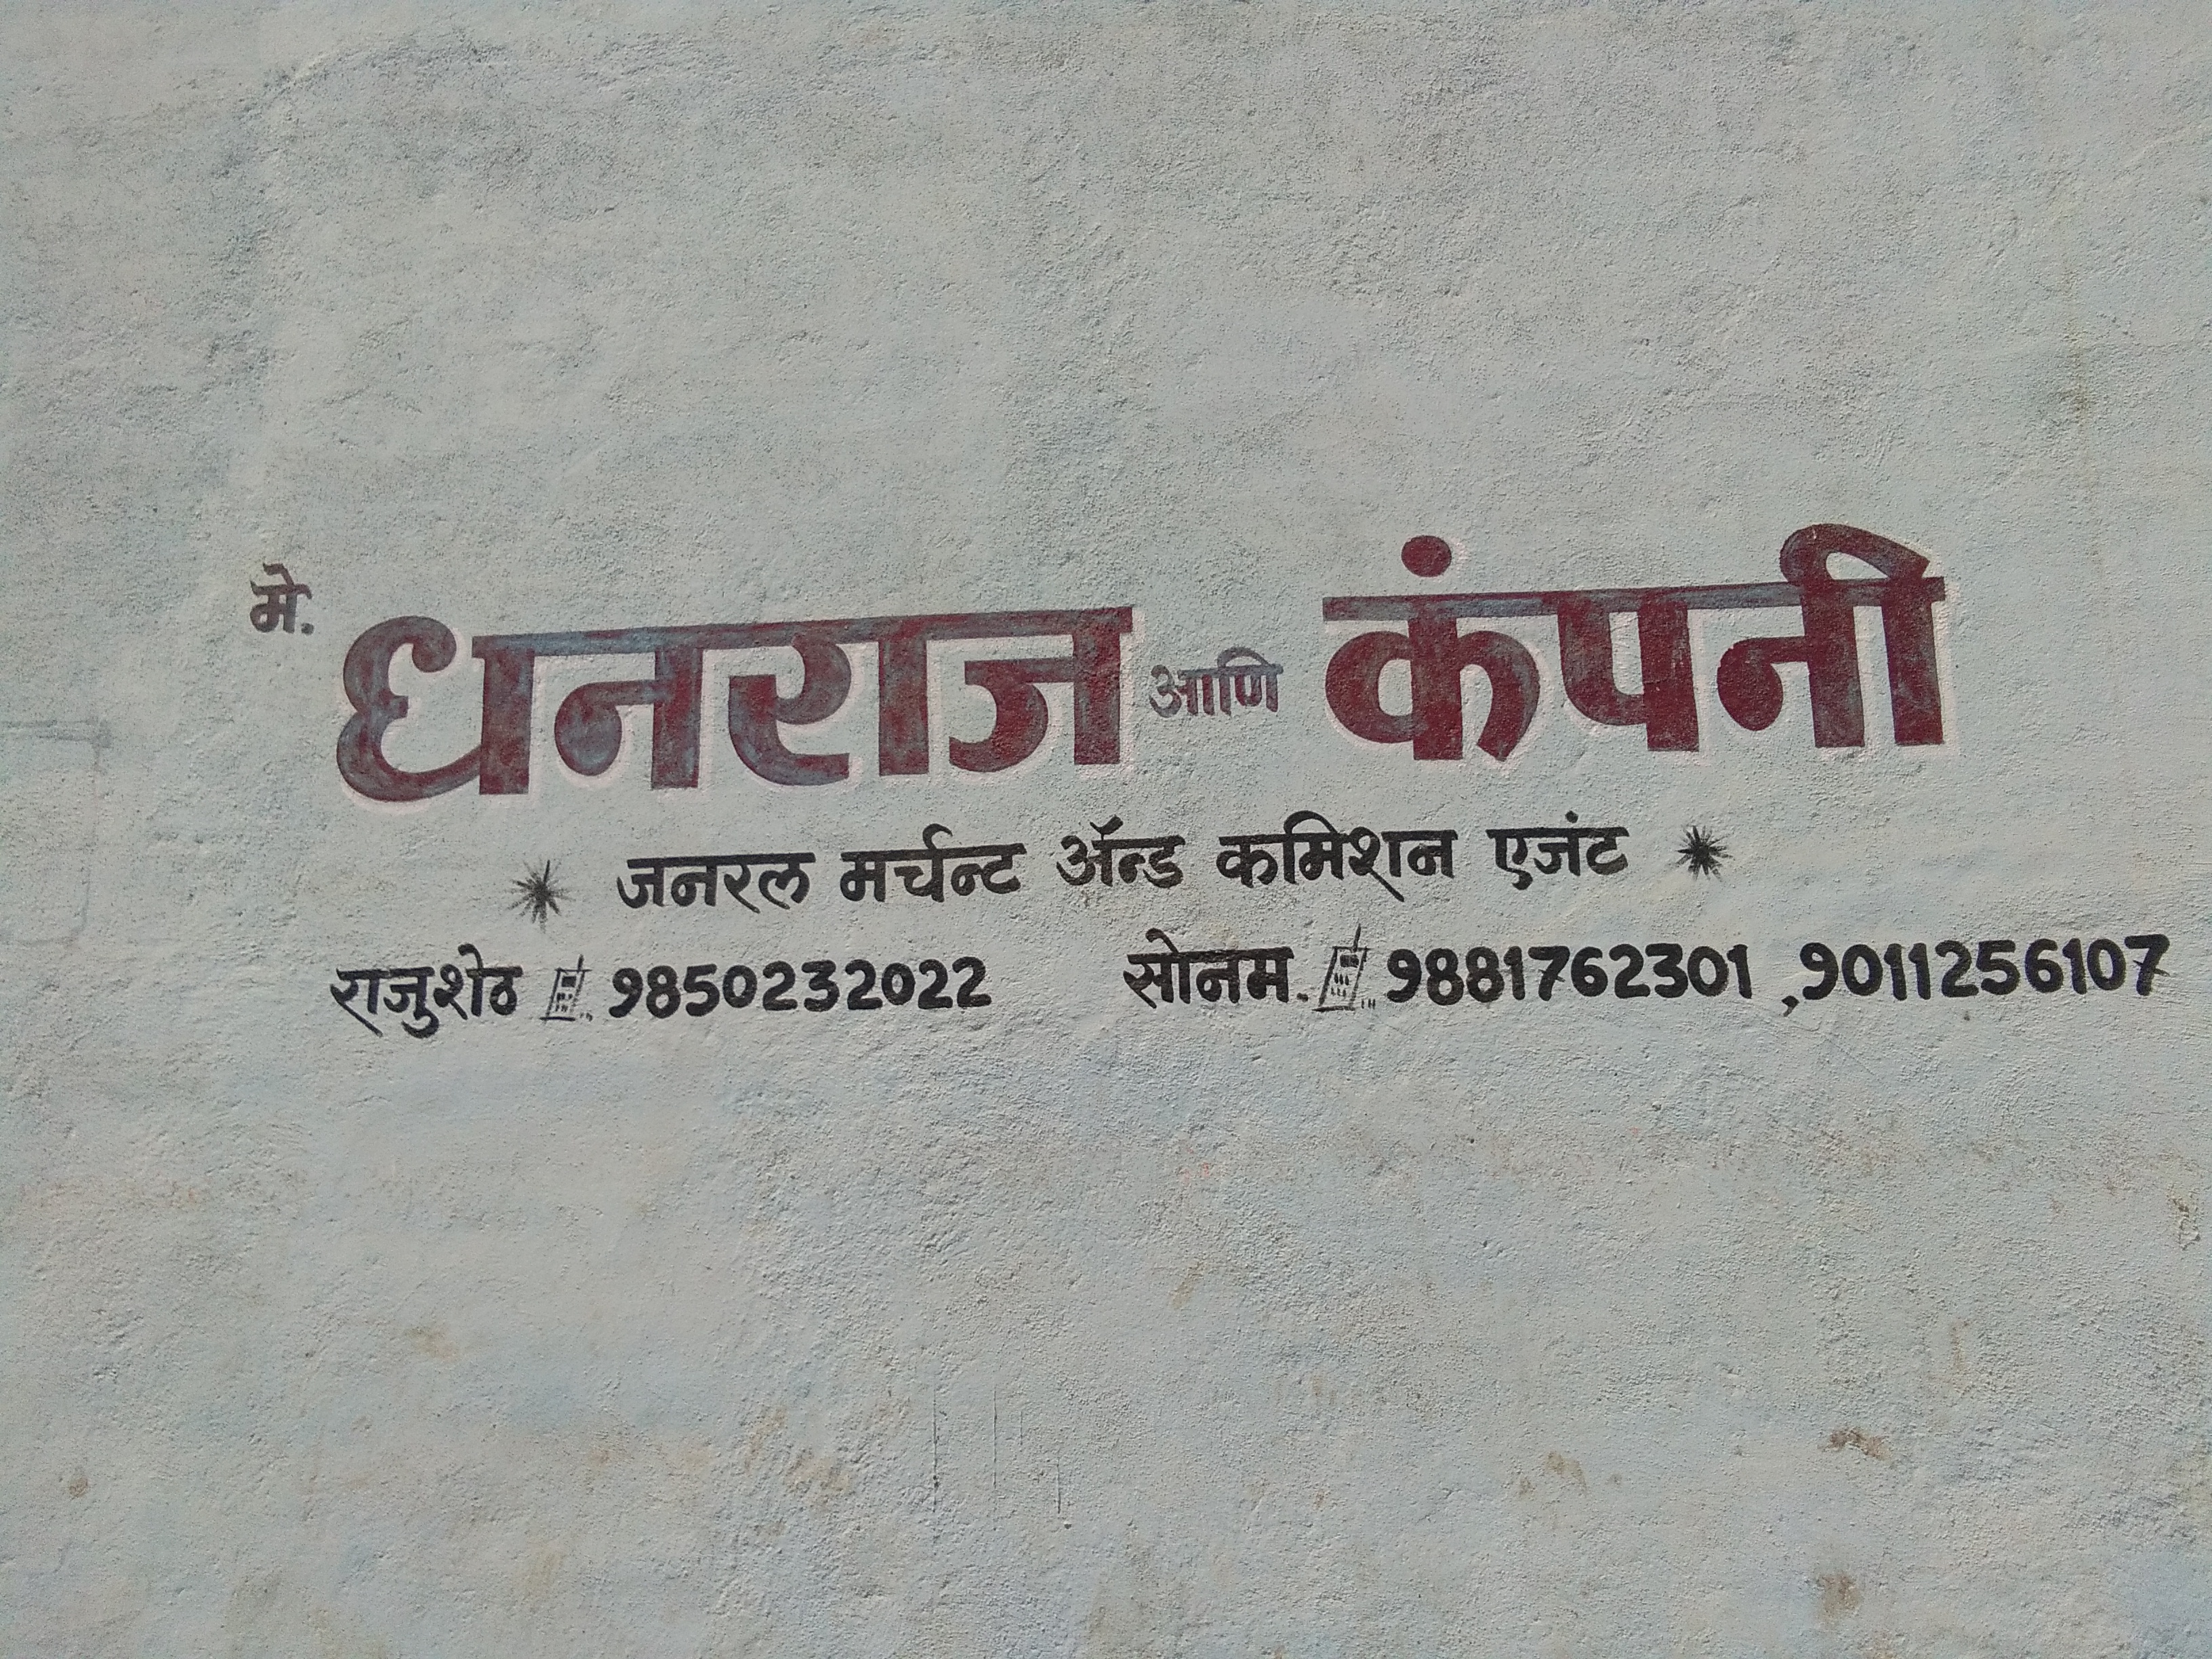 मे. धनराज आणि कंपनी
* जनरल मर्चन्ट ॲन्ड कमिशन एजंट *
राजुशेठ 9850232022 सोनम. 9881762301 ,9011256107